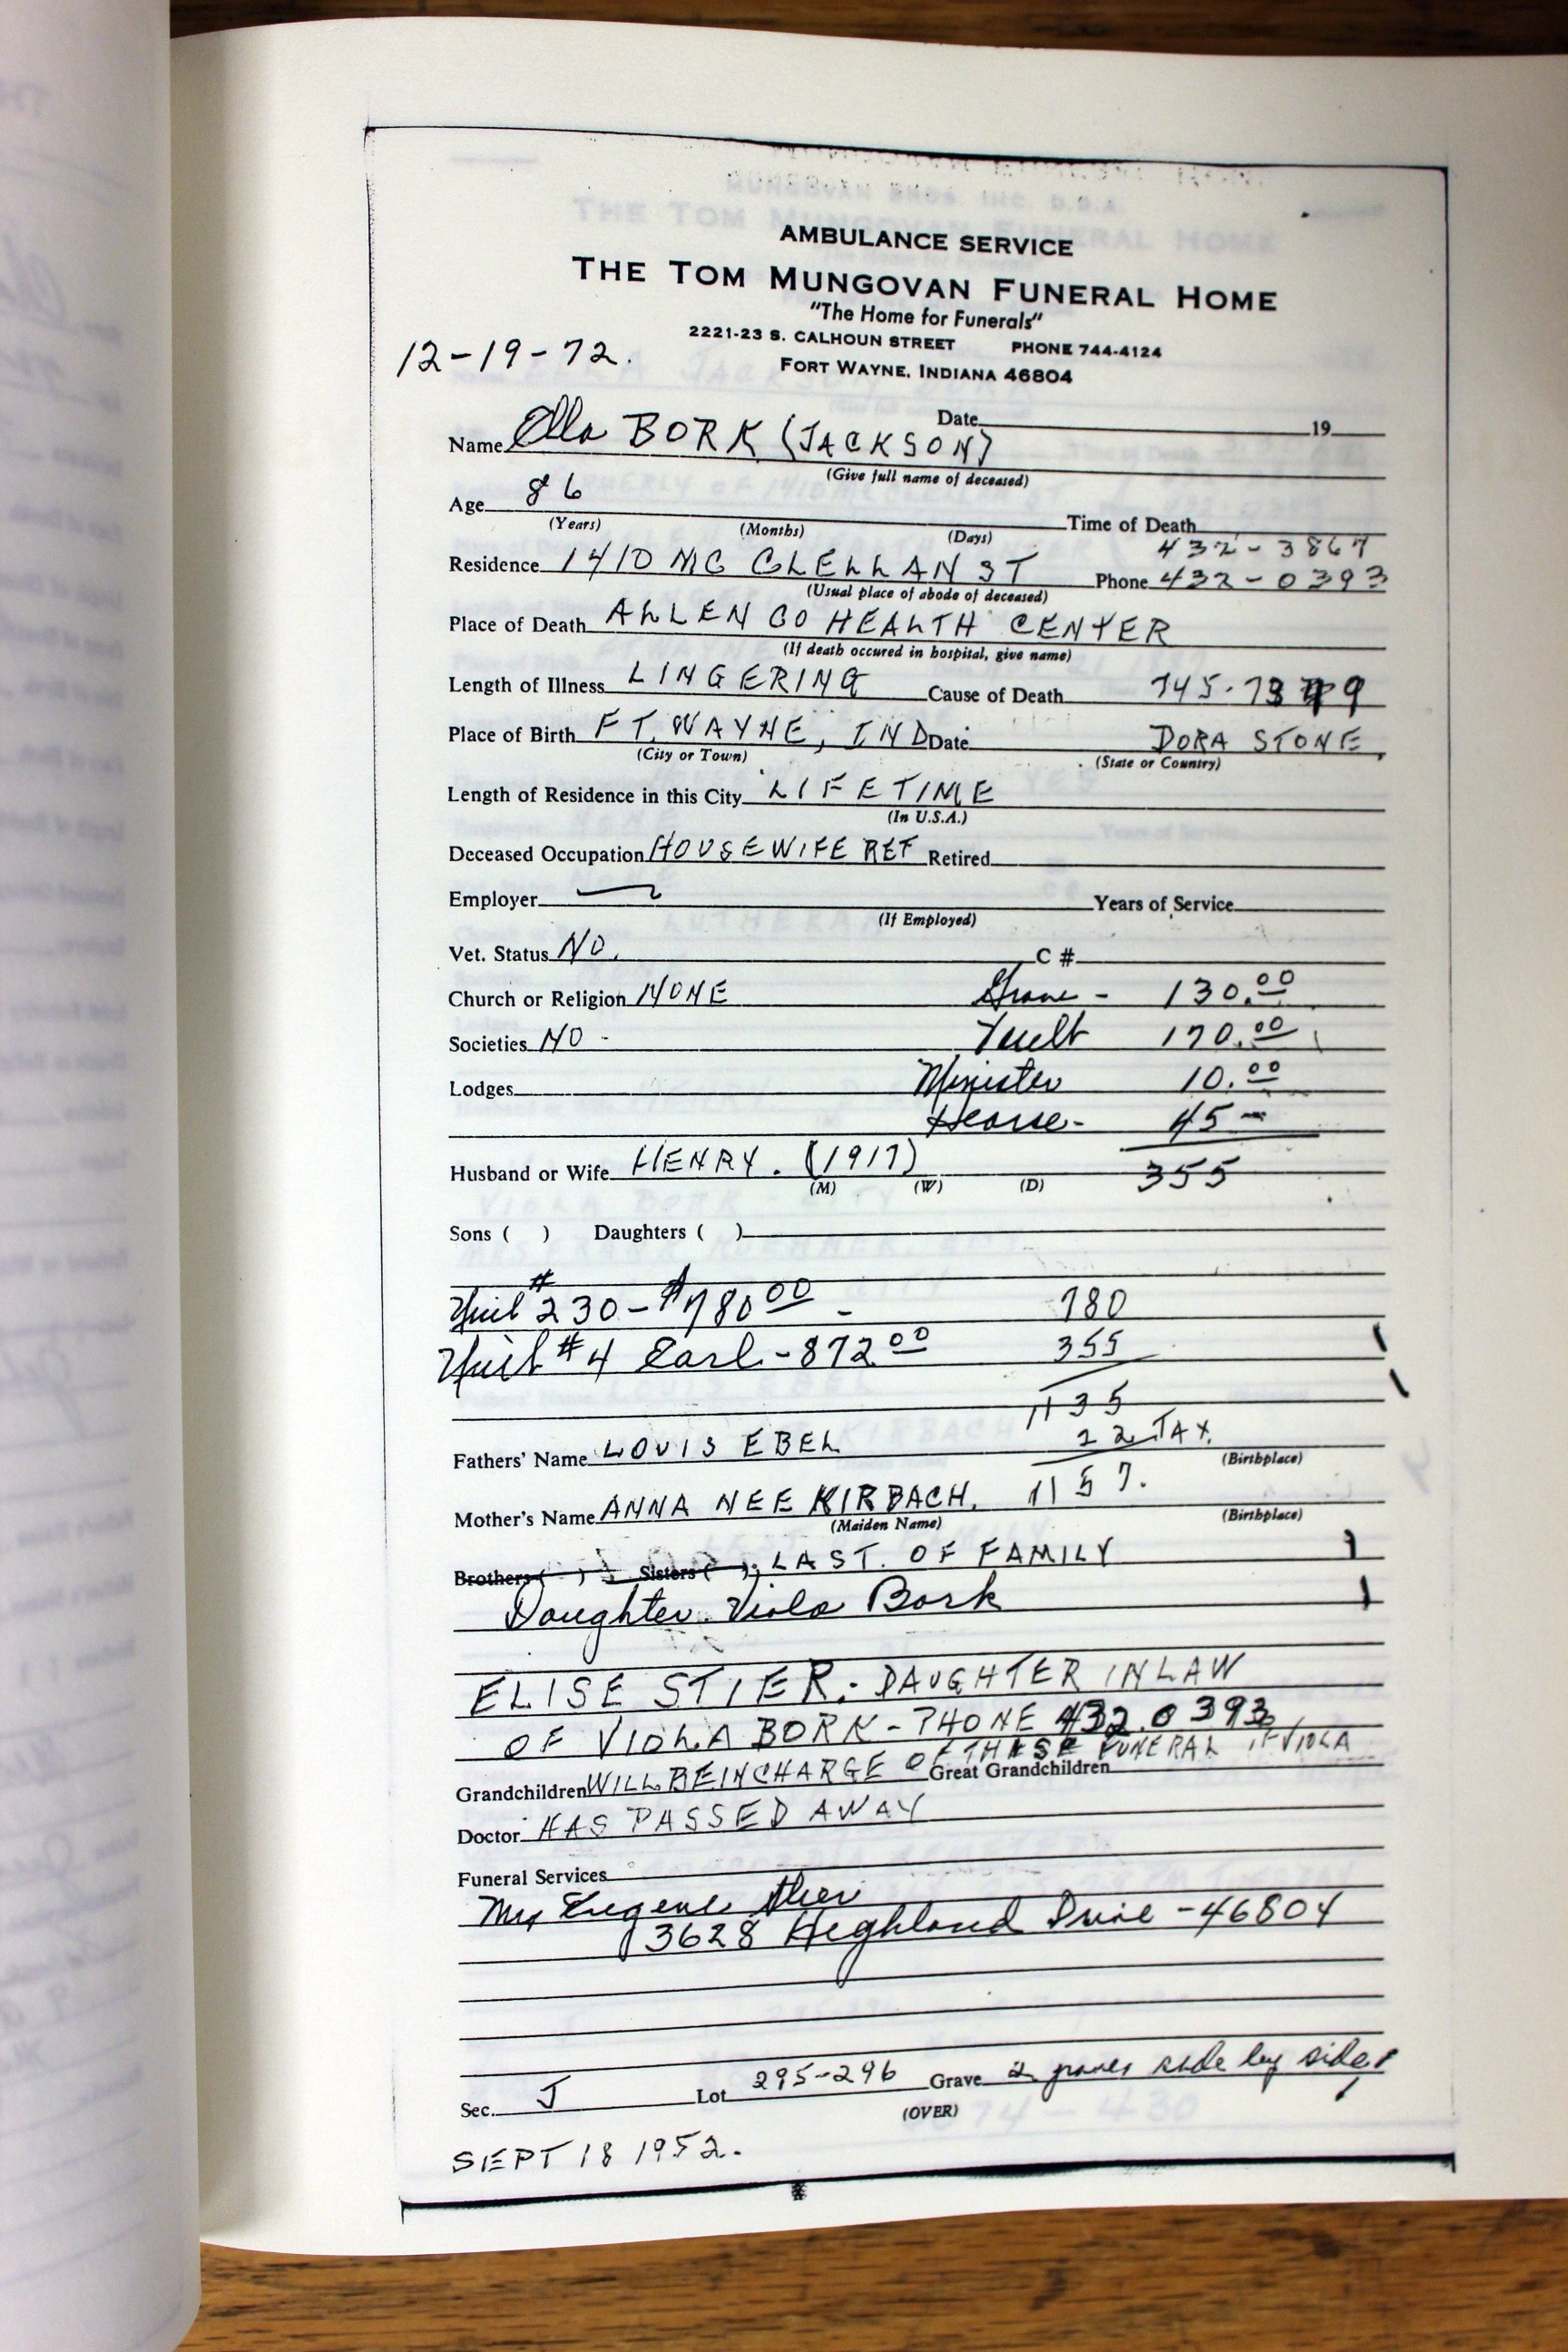 AMBULANCE SERVICE
THE TOM MUNGOVAN FUNERAL HOME
"The Home for Funerals"
2221-23 S. CALHOUN STREET PHONE 744-4124
FORT WAYNE, INDIANA 46804
12-19-72.
Date 19
Name Ella BORK (JACKSON)
(Give full name of deceased)
Age 86
(Years) (Months) (Days) Time of Death
432-3867
Residence 1410 MC CLELLAN ST Phone 432-0393
(Usual place of abode of deceased)
Place of Death ALLEN CO HEALTH CENTER
(If death occured in hospital, give name)
Length of Illness LINGERING Cause of Death
Place of Birth FT. WAYNE, IND Date DORA STONE
(City or Town) (State or Country)
Length of Residence in this City LIFETIME
(In U.S.A.)
Deceased Occupation HOUSEWIFE RET Retired
Employer Years of Service
(If Employed)
Vet. Status NO. C #
Church or Religion NONE Grave - 130.00
Societies NO - Vault 170.00
Lodges Minister 10.00
Hearse - 45 -
Husband or Wife HENRY. (1917) 355
(M) (W) (D)
Sons ( ) Daughters ( )
Unit #230 - $780 00 - 780
Unit #4 Earl - 872 00 355
1135
Fathers' Name LOUIS EBEL 22 TAX.
(Birthplace)
Mother's Name ANNA NEE KIRBACH. 1157.
(Maiden Name) (Birthplace)
Brothers ( ) Sisters ( ) LAST. OF FAMILY
Daughter. Viola Bork
ELISE STIER. DAUGHTER IN LAW
OF VIOLA BORK - PHONE 432.0393
Grandchildren WILL BE IN CHARGE OF THESE FUNERAL IF VIOLA
Great Grandchildren
Doctor HAS PASSED AWAY
Funeral Services
Mrs Eugene Stier
3628 Highland Drive - 46804
Sec. J Lot 295-296 Grave 2 graves side by side
(OVER)
SEPT 18 1952.